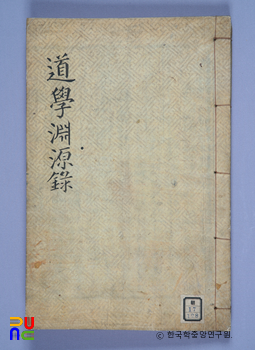 道學淵源錄
RUNE
ⓒ 한국학중앙연구원